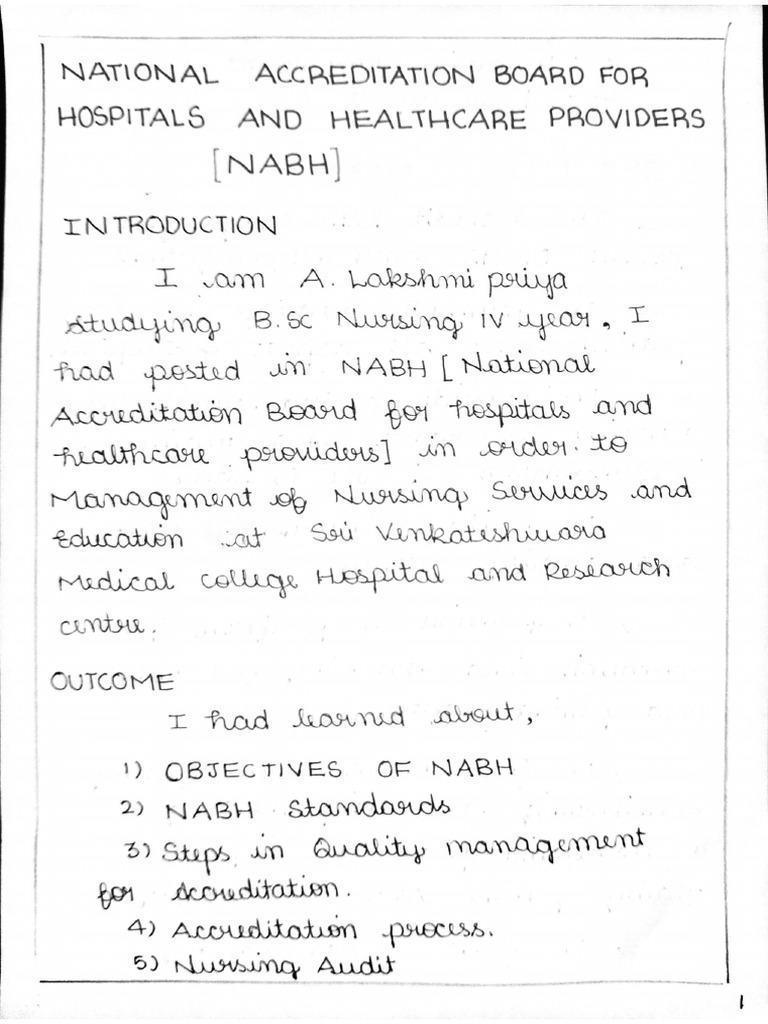 NATIONAL ACCREDITATION BOARD FOR
HOSPITALS AND HEALTHCARE PROVIDERS
[NABH]
INTRODUCTION
I am A. Lakshmi priya
studying B.SC Nursing IV year, I
had posted in NABH [National
Accreditation Board for hospitals and
healthcare providers] in order to
Management of Nursing Services and
Education at Sri Venkateshwara
Medical college Hospital and Research
centre.
OUTCOME
I had learned about,
1) OBJECTIVES OF NABH
2) NABH Standards
3) Steps in Quality management
for Accreditation.
4) Accreditation process.
5) Nursing Audit
1